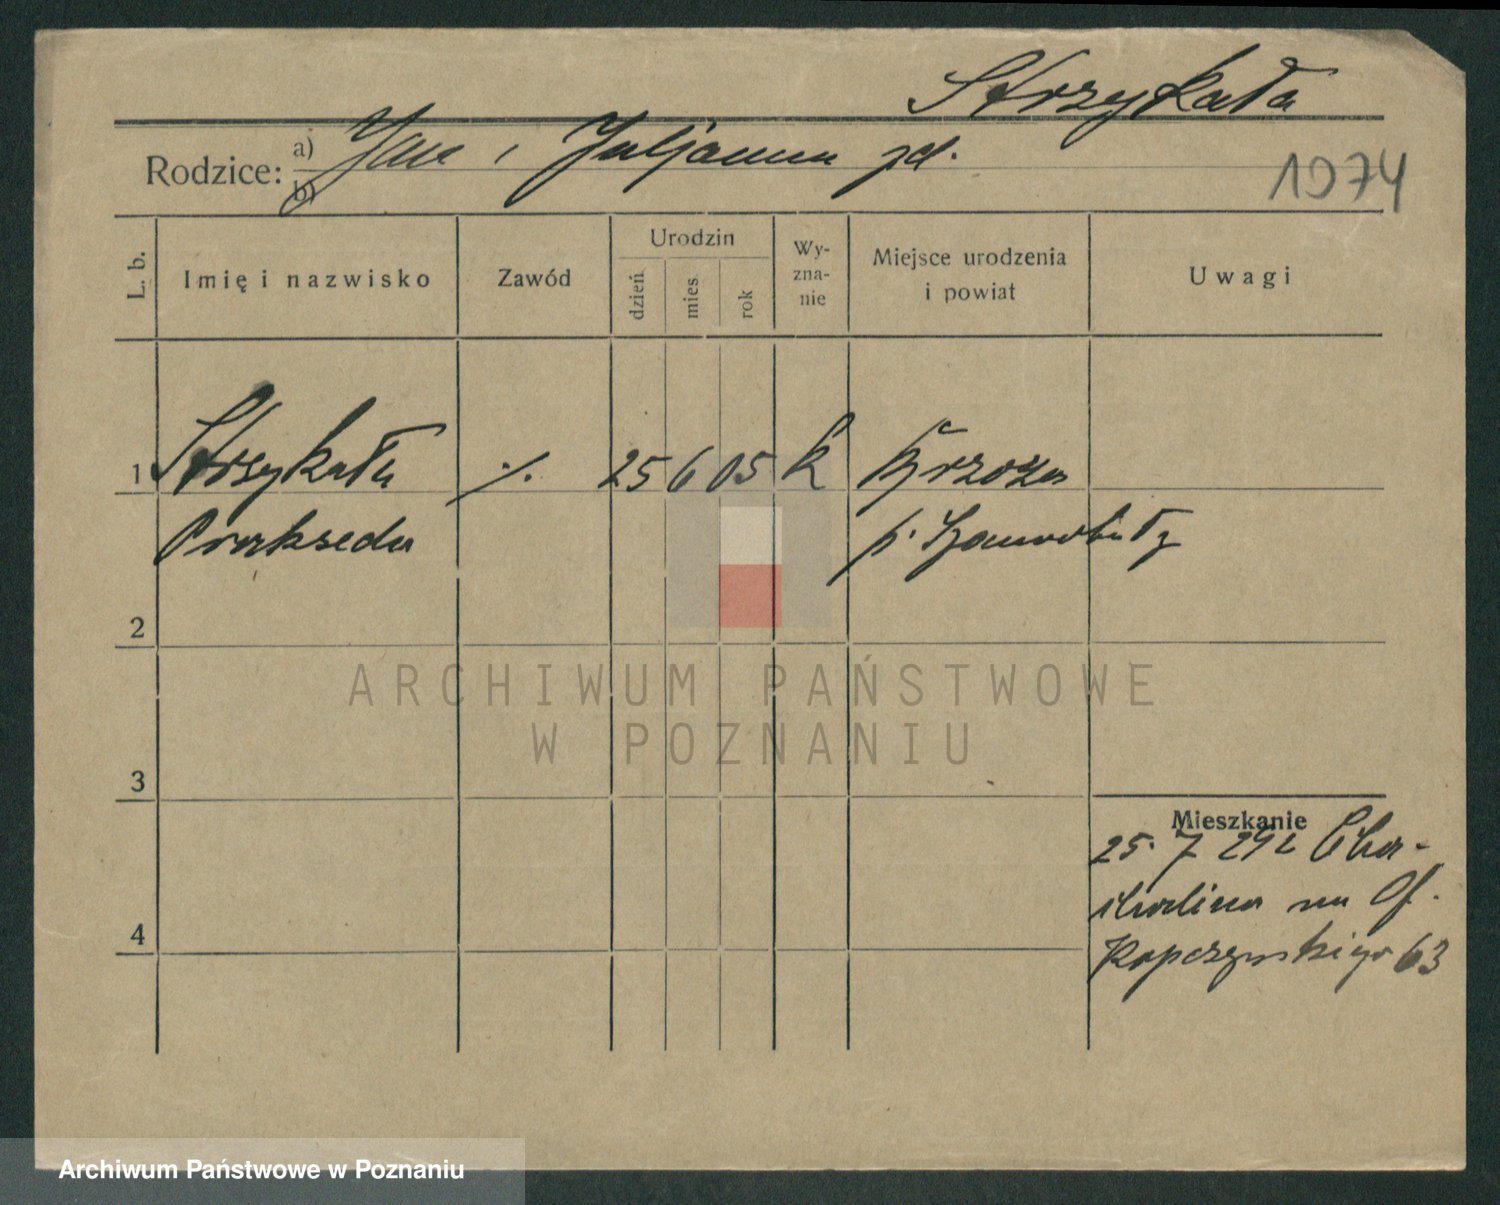 Strzykała
Rodzice: a) Jan i Juljanna zd.
b)
1974
L. b.
Imię i nazwisko
Zawód
Urodzin
dzień
mies
rok
Wy-
zna-
nie
Miejsce urodzenia
i powiat
Uwagi
1 Strzykała ./. 25 6 05 k Brzoza
Prakseda p. Szamotuły
2
3
4
ARCHIWUM PAŃSTWOWE
W POZNANIU
Mieszkanie
25. 7 29
na
Kopczyńskiego 63
Archiwum Państwowe w Poznaniu